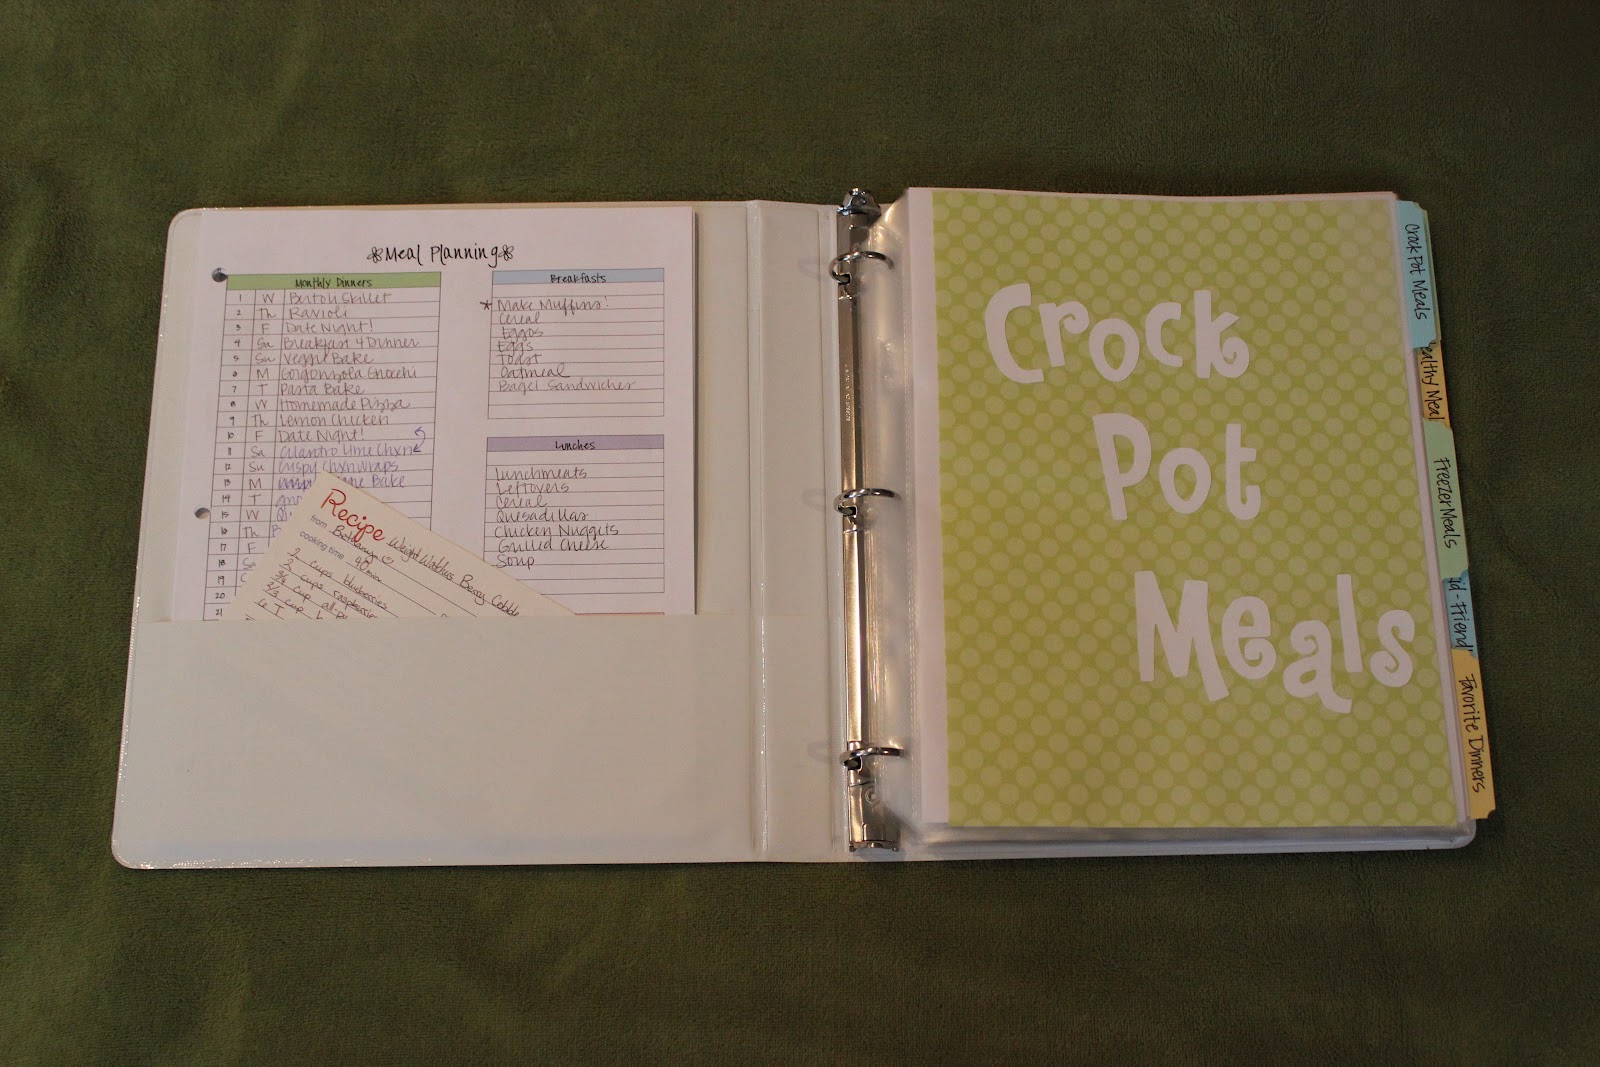 Meal Planning
Monthly Dinners
1 W Bertoli Skillet
2 Th Ravioli
3 F Date Night!
4 Sa Breakfast 4 Dinner
5 Su Veggie Bake
6 M Gorgonzola Gnocchi
7 T Pasta Bake
8 W Homemade Pizza
9 Th Lemon Chicken
10 F Date Night!
11 Sa Cilantro Lime Chxn
12 Su Crispy Chxn Wraps
13 M Bake
14 T
15 W
16 Th
17 F
18
19
20
21
Breakfasts
* Make Muffins!
Cereal
Eggos
Eggs
Toast
Oatmeal
Bagel Sandwiches
Lunches
Lunchmeats
Leftovers
Cereal
Quesadillas
Chicken Nuggets
Grilled Cheese
Soup
Recipe Weight Watchers Berry Cobbl
from Bethany
cooking time 40 min
2 cups blueberries
2 cups raspberries
cup all-p
2/3 cup
6 T
Crock
Pot
Meals
Crock Pot Meals
ealthy Meal
Freezer Meals
id-Friend
Favorite Dinners